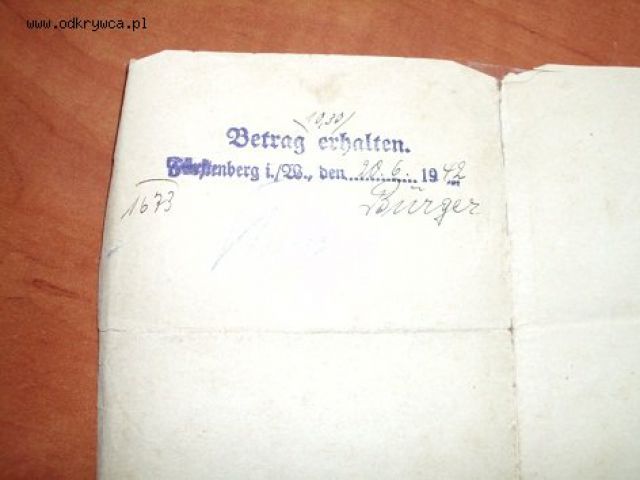 www.odkrywca.pl
10,30
Betrag erhalten.
Fürstenberg i./W., den 20.6. 1942
1673
Bürger